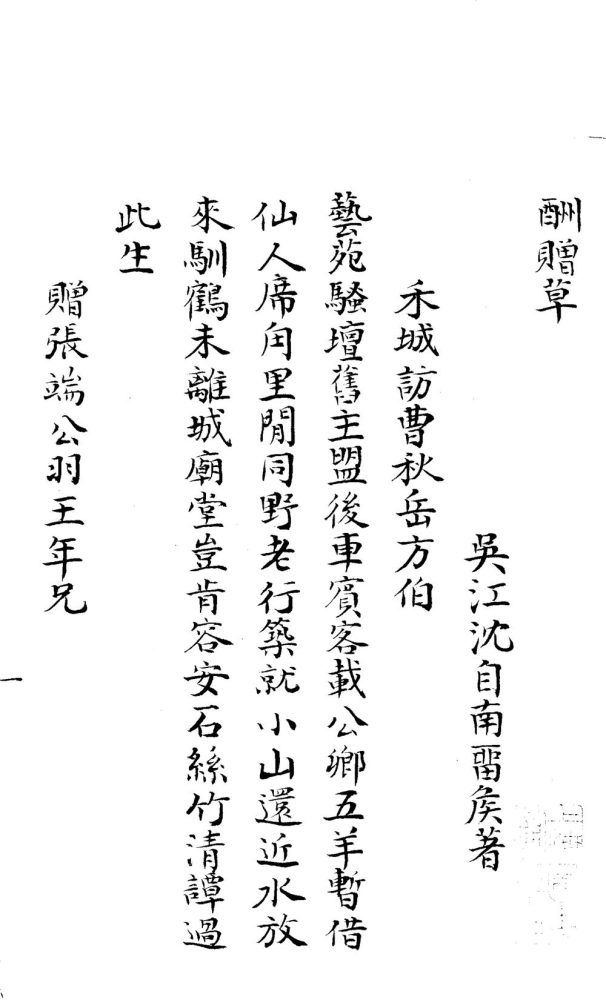 酬贈草
吳江沈自南畱矦著
禾城訪曹秋岳方伯
藝苑騷壇舊主盟後車賓客載公卿五羊暫借
仙人席甪里閒同野老行築就小山還近水放
來馴鶴未離城廟堂豈肯容安石絲竹清譚過
此生
贈張端公羽王年兄
一